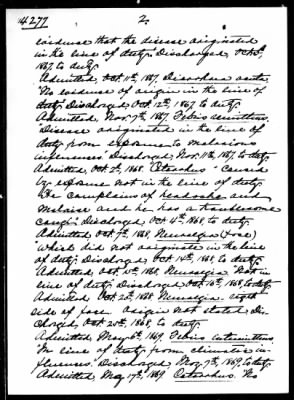 4277
2.
evidence that the disease originated
in the line of duty. Discharged, Oct. 
1867, to duty.
Admitted, Oct. 11th, 1867, Diarrhoea acute.
"No evidence of origin in the line of
duty." Discharged, Oct. 12th, 1867, to duty.
Admitted, Nov. 7th, 1867, Febris remittens.
"Disease originated in the line of
duty from exposure to malarious
influences." Discharged, Nov. 11th, 1867, to duty.
Admitted, Oct. 2d, 1868, Catarrhus "Caused
by exposure not in the line of duty.
He complains of headache and
malaise and he has a troublesome
cough." Discharged, Oct. 4th, 1868, to duty.
Admitted Oct. 7th, 1868, Neuralgia (face)
"which did not originate in the line
of duty." Discharged, Oct. 14th, 1868, to duty.
Admitted Oct. 15th, 1868, Neuralgia. "Not in
line of duty." Discharged, Oct. 16th, 1868, to duty.
Admitted Oct. 20th, 1868, Neuralgia, right
side of face. Origin not stated. Dis-
charged, Oct. 20th, 1868, to duty.
Admitted, May 6th, 1869, Febris intermittens.
"In line of duty from climatic in-
fluences." Discharged, May 7th, 1869, to duty.
Admitted, May 17th, 1869, Catarrhus. No